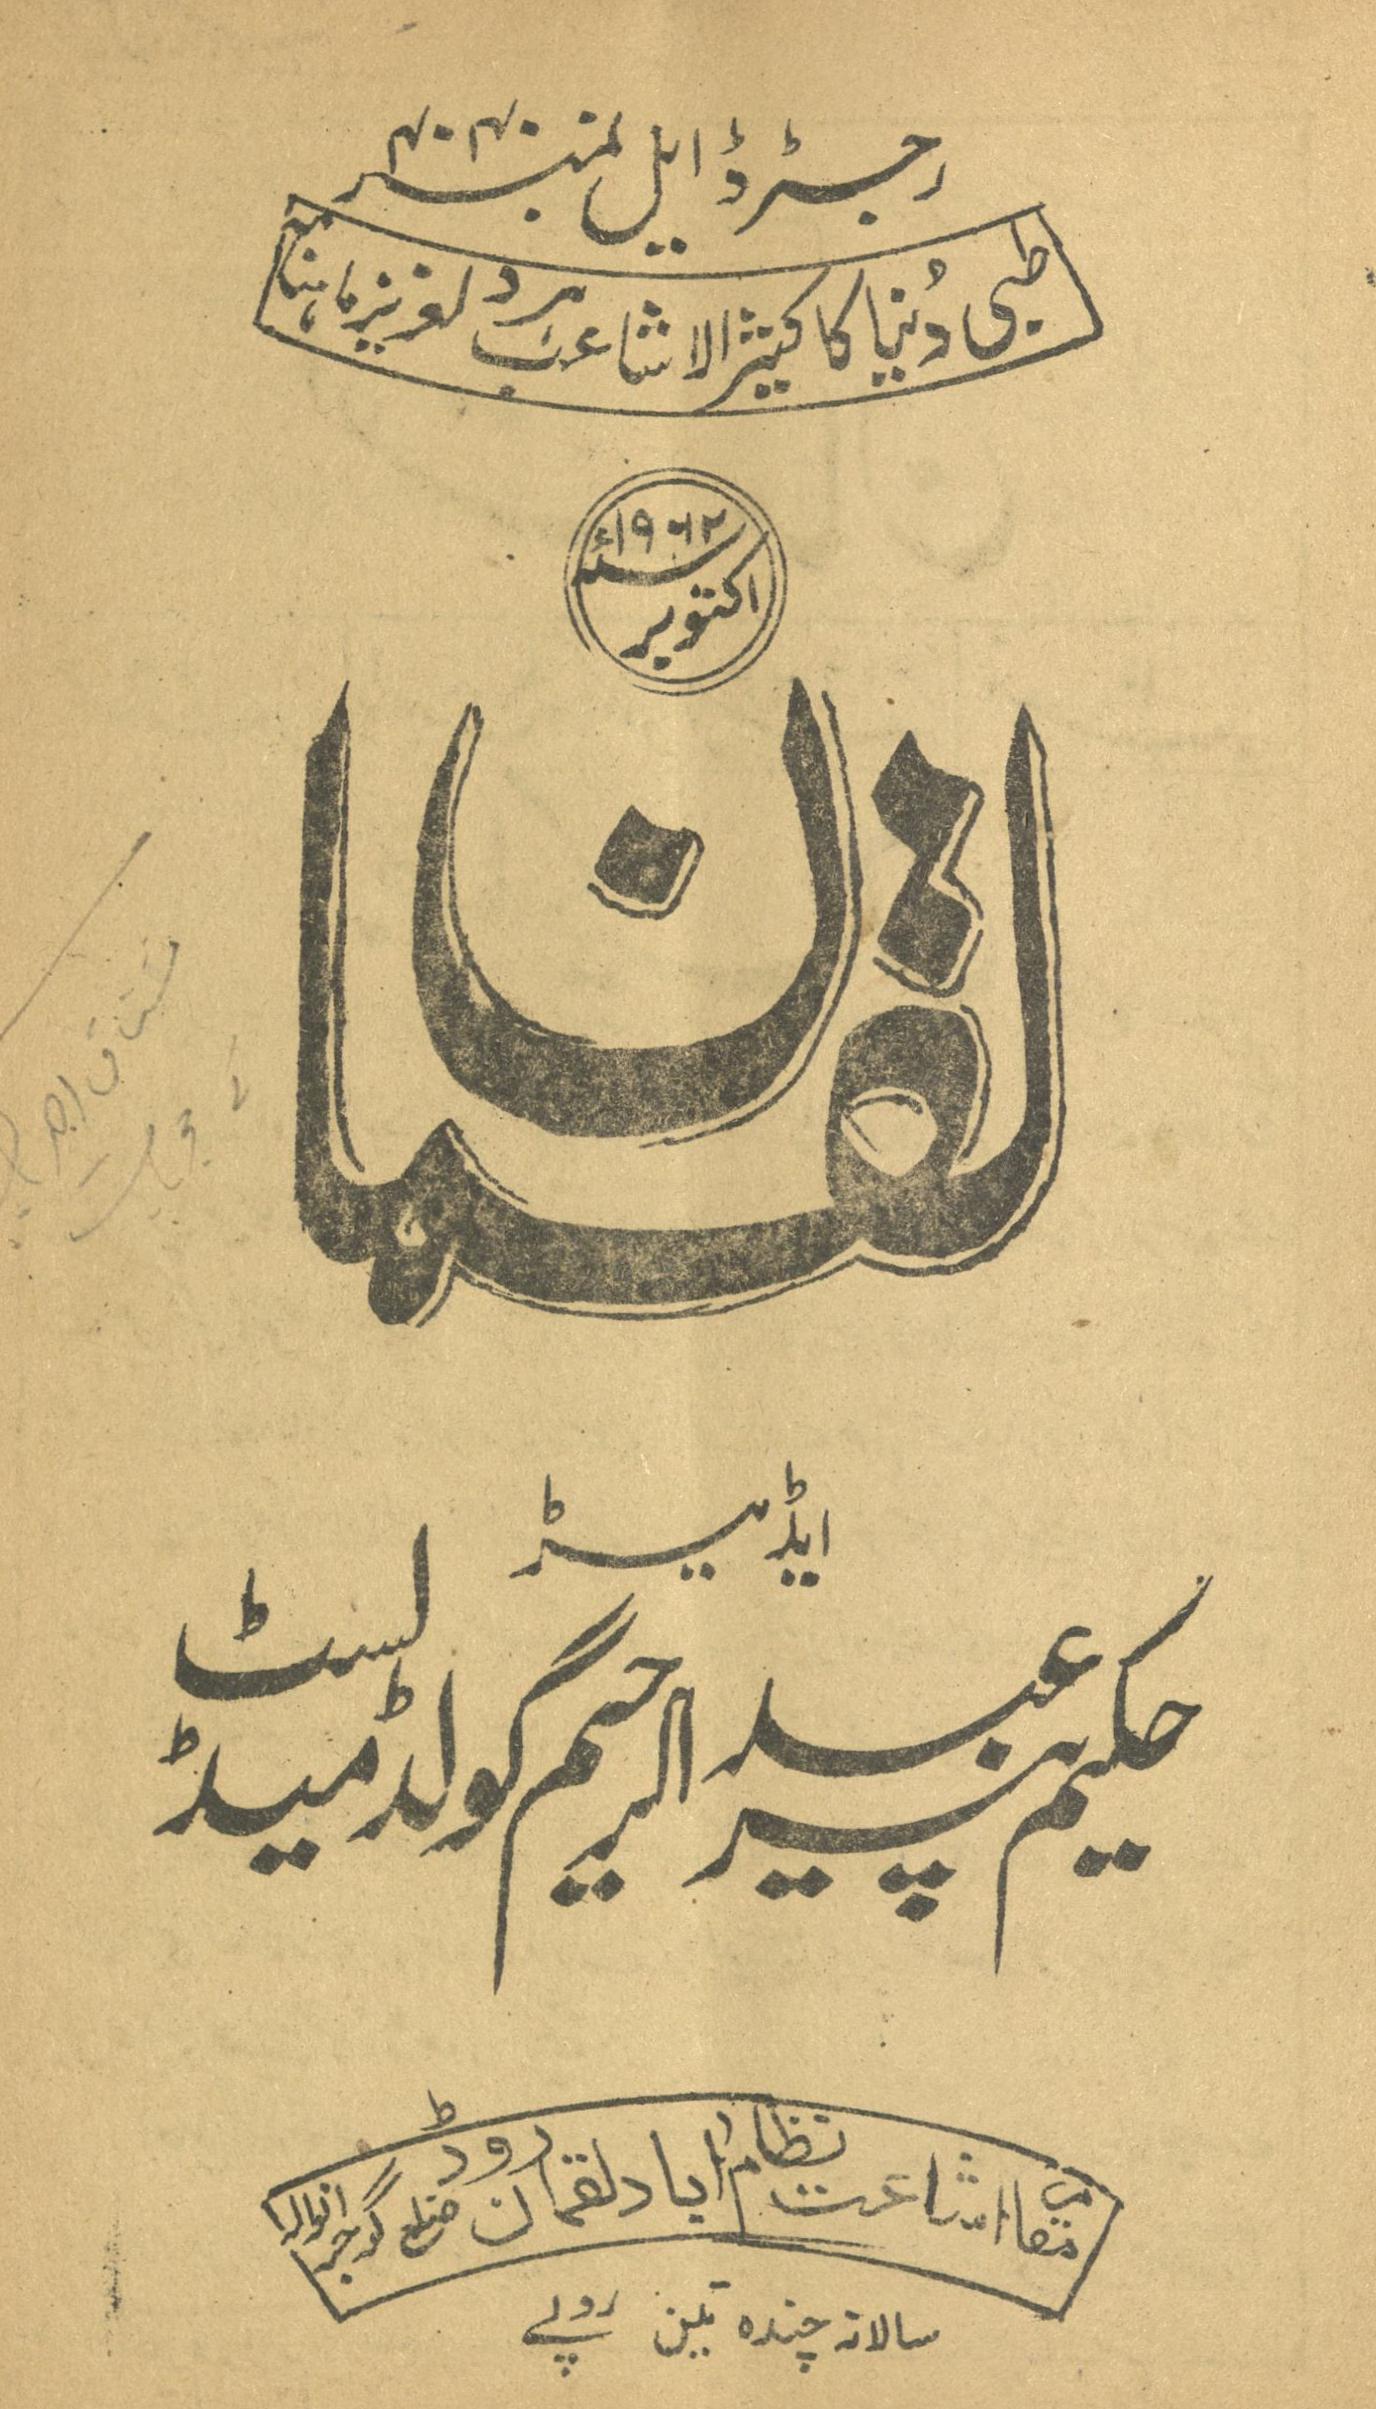 رجسٹرڈ ایل نمبر ۴۰۴۰
طبی دُنیا کا کثیر الاشاعت ہر دلعزیز ماہنامہ
۱۹۶۲ء
اکتوبر
لقمان
ایڈیٹر
حکیم پیر عبدالرحیم گولڈ میڈلسٹ
مقام اشاعت نظام آباد لقمان روڈ ضلع گوجرانوالہ
سالانہ چندہ تین روپے